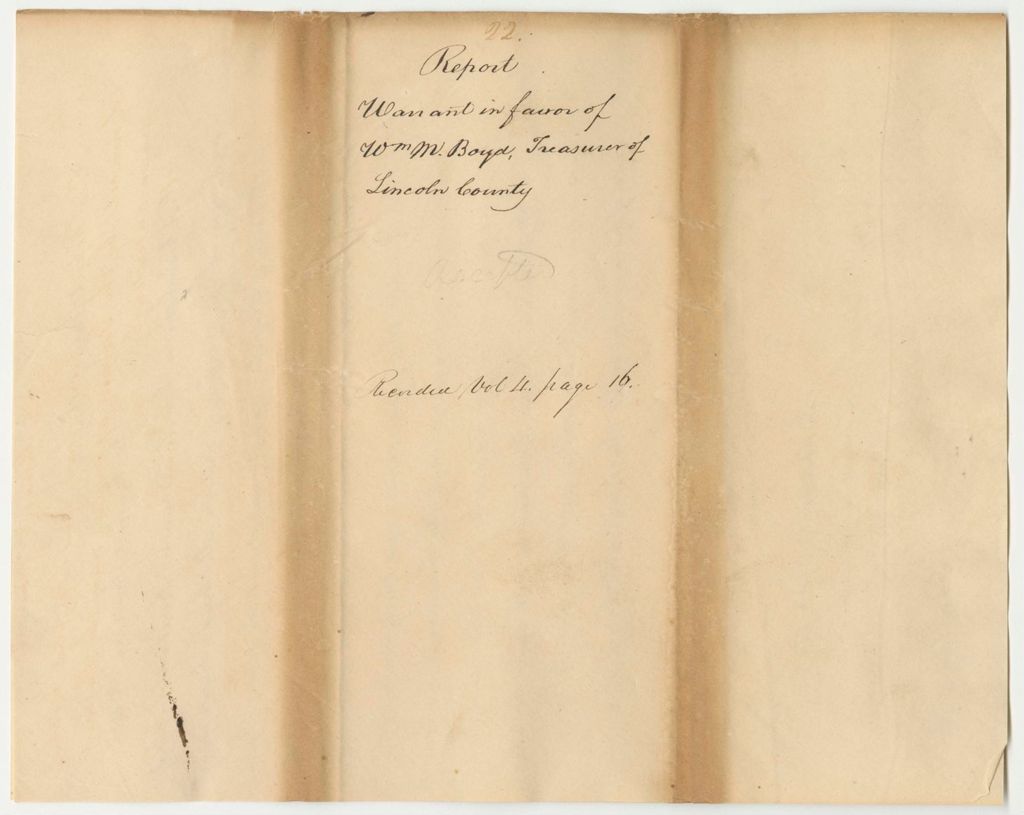 22.
Report
Warrant in favor of
Wm M. Boyd, Treasurer of
Lincoln County
Recorded Vol 4. page 16.